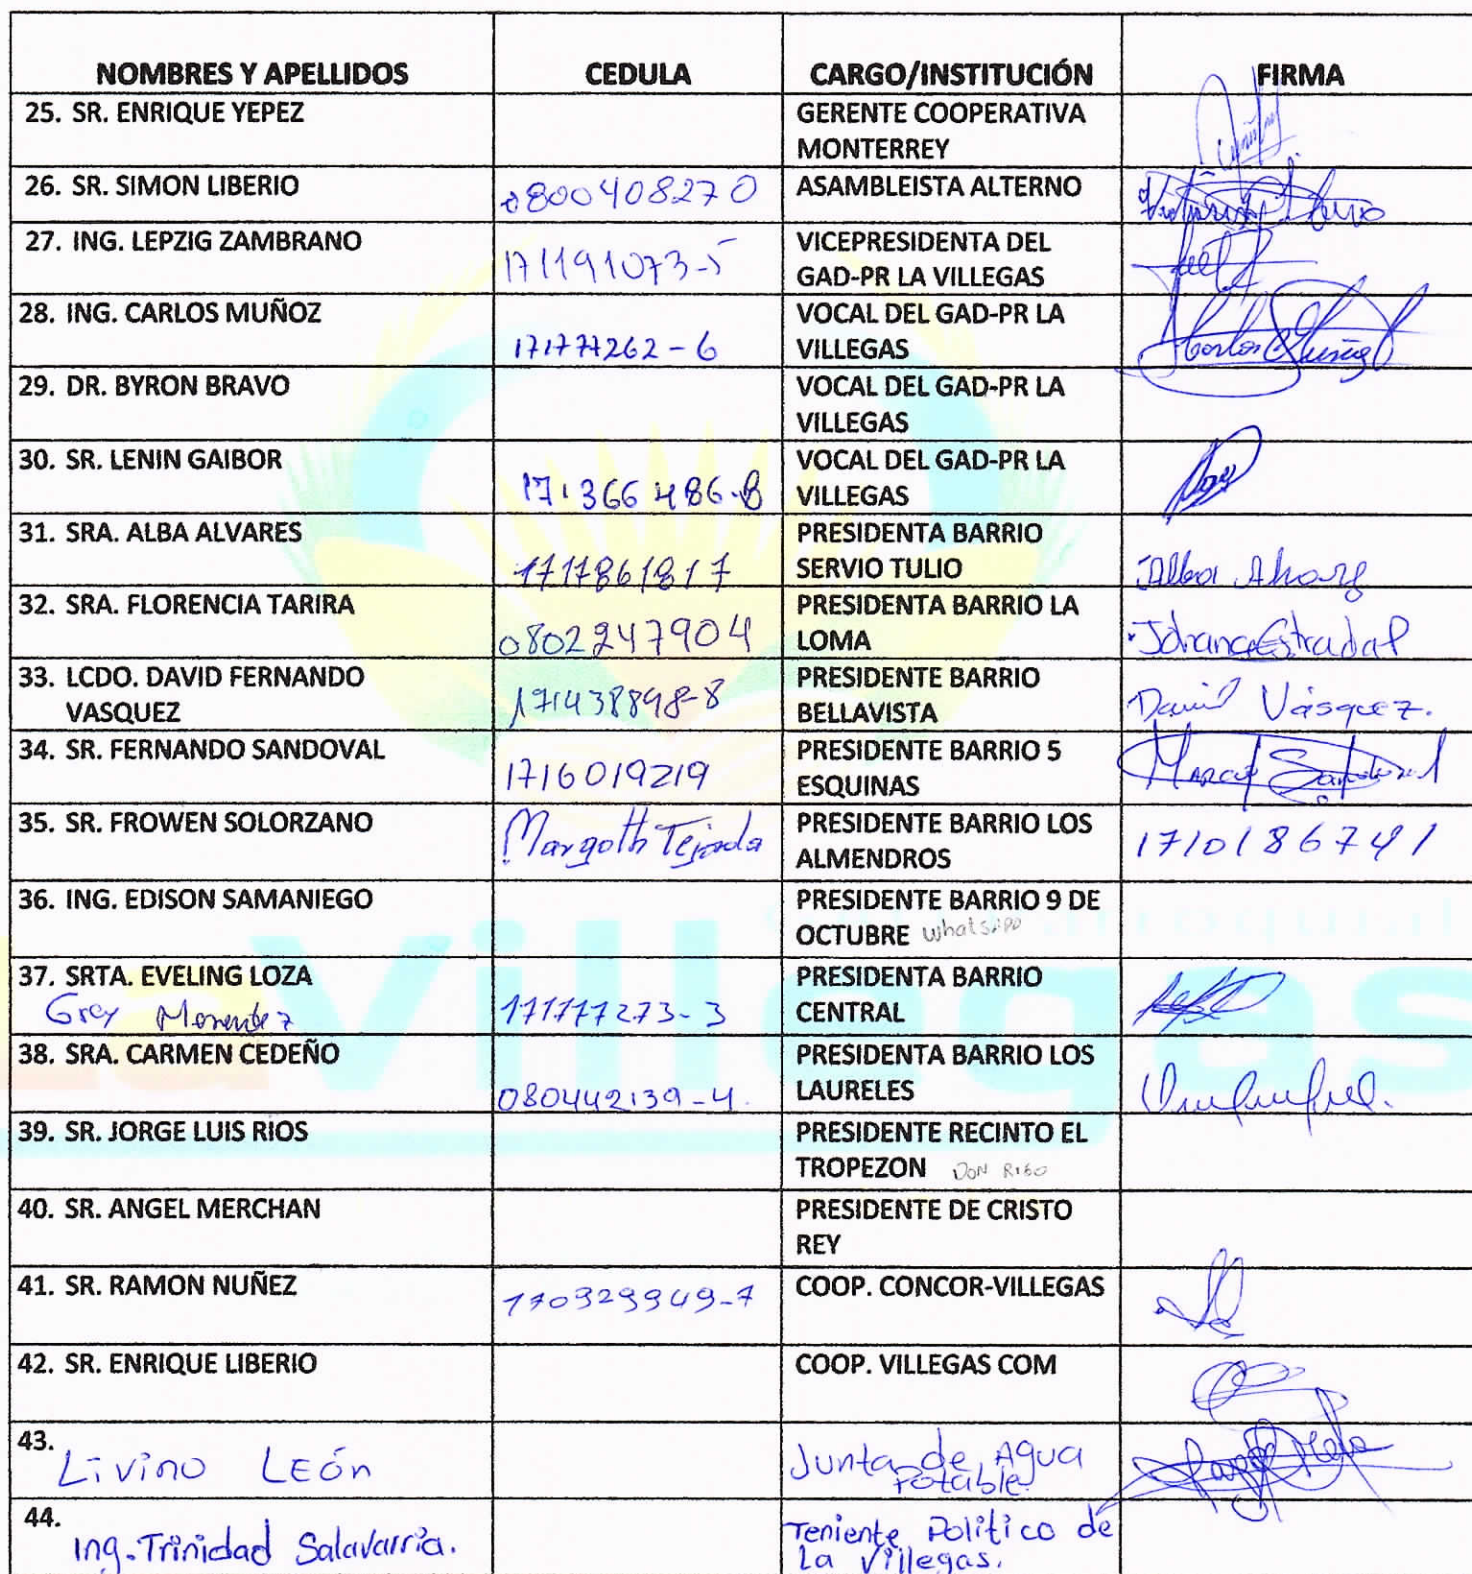 NOMBRES Y APELLIDOS CEDULA CARGO/INSTITUCIÓN FIRMA
25. SR. ENRIQUE YEPEZ GERENTE COOPERATIVA
MONTERREY
26. SR. SIMON LIBERIO 0800408270 ASAMBLEISTA ALTERNO
27. ING. LEPZIG ZAMBRANO 171191073-5 VICEPRESIDENTA DEL
GAD-PR LA VILLEGAS
28. ING. CARLOS MUÑOZ 171777262-6 VOCAL DEL GAD-PR LA
VILLEGAS Carlos Muñoz
29. DR. BYRON BRAVO VOCAL DEL GAD-PR LA
VILLEGAS
30. SR. LENIN GAIBOR 171366486-8 VOCAL DEL GAD-PR LA
VILLEGAS
31. SRA. ALBA ALVARES 1717861817 PRESIDENTA BARRIO
SERVIO TULIO Alba
32. SRA. FLORENCIA TARIRA 0802247904 PRESIDENTA BARRIO LA
LOMA Johana Estrada
33. LCDO. DAVID FERNANDO
VASQUEZ 171438898-8 PRESIDENTE BARRIO
BELLAVISTA David Vásquez.
34. SR. FERNANDO SANDOVAL 1716019219 PRESIDENTE BARRIO 5
ESQUINAS Marco Sandoval
35. SR. FROWEN SOLORZANO Margoth Tejada PRESIDENTE BARRIO LOS
ALMENDROS 1710186741
36. ING. EDISON SAMANIEGO PRESIDENTE BARRIO 9 DE
OCTUBRE whatsapp
37. SRTA. EVELING LOZA PRESIDENTA BARRIO
Grey 171177273-3 CENTRAL
38. SRA. CARMEN CEDEÑO PRESIDENTA BARRIO LOS
080442139-4. LAURELES
39. SR. JORGE LUIS RIOS PRESIDENTE RECINTO EL
TROPEZON DON
40. SR. ANGEL MERCHAN PRESIDENTE DE CRISTO
REY
41. SR. RAMON NUÑEZ 170329949-7 COOP. CONCOR-VILLEGAS
42. SR. ENRIQUE LIBERIO COOP. VILLEGAS COM
43. Livino León Junta de Agua
Potable.
44. Ing. Trinidad Salavarria. Teniente Político de
La Villegas.
La Villegas